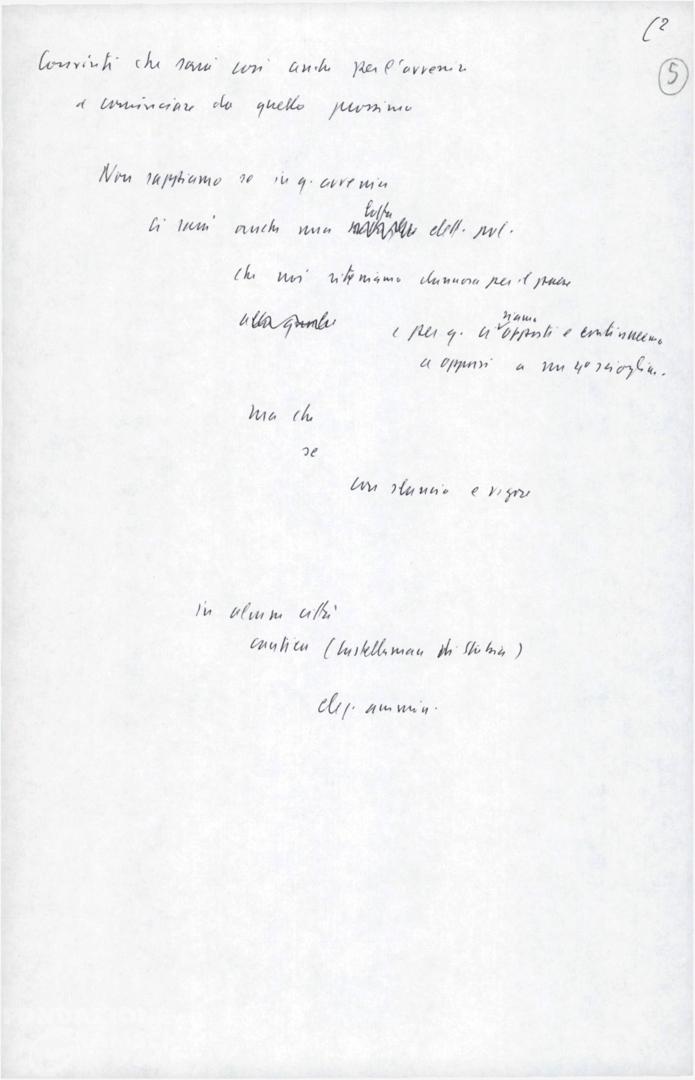 (2
5
Convinti che sarà così anche per l'avvenire
a cominciare da quello prossimo
Non sappiamo se in q. avvenire
ci sarà anche una lotta delt. pol.
che noi riteniamo dannosa per il paese
alla quale e per q. ci siamo opposti e continueremo
a opporsi a un 4° scioglim.
ma che
se
con slancio e vigore
in alcune città
antica (Castellammare di Stabia)
elez. ammin.